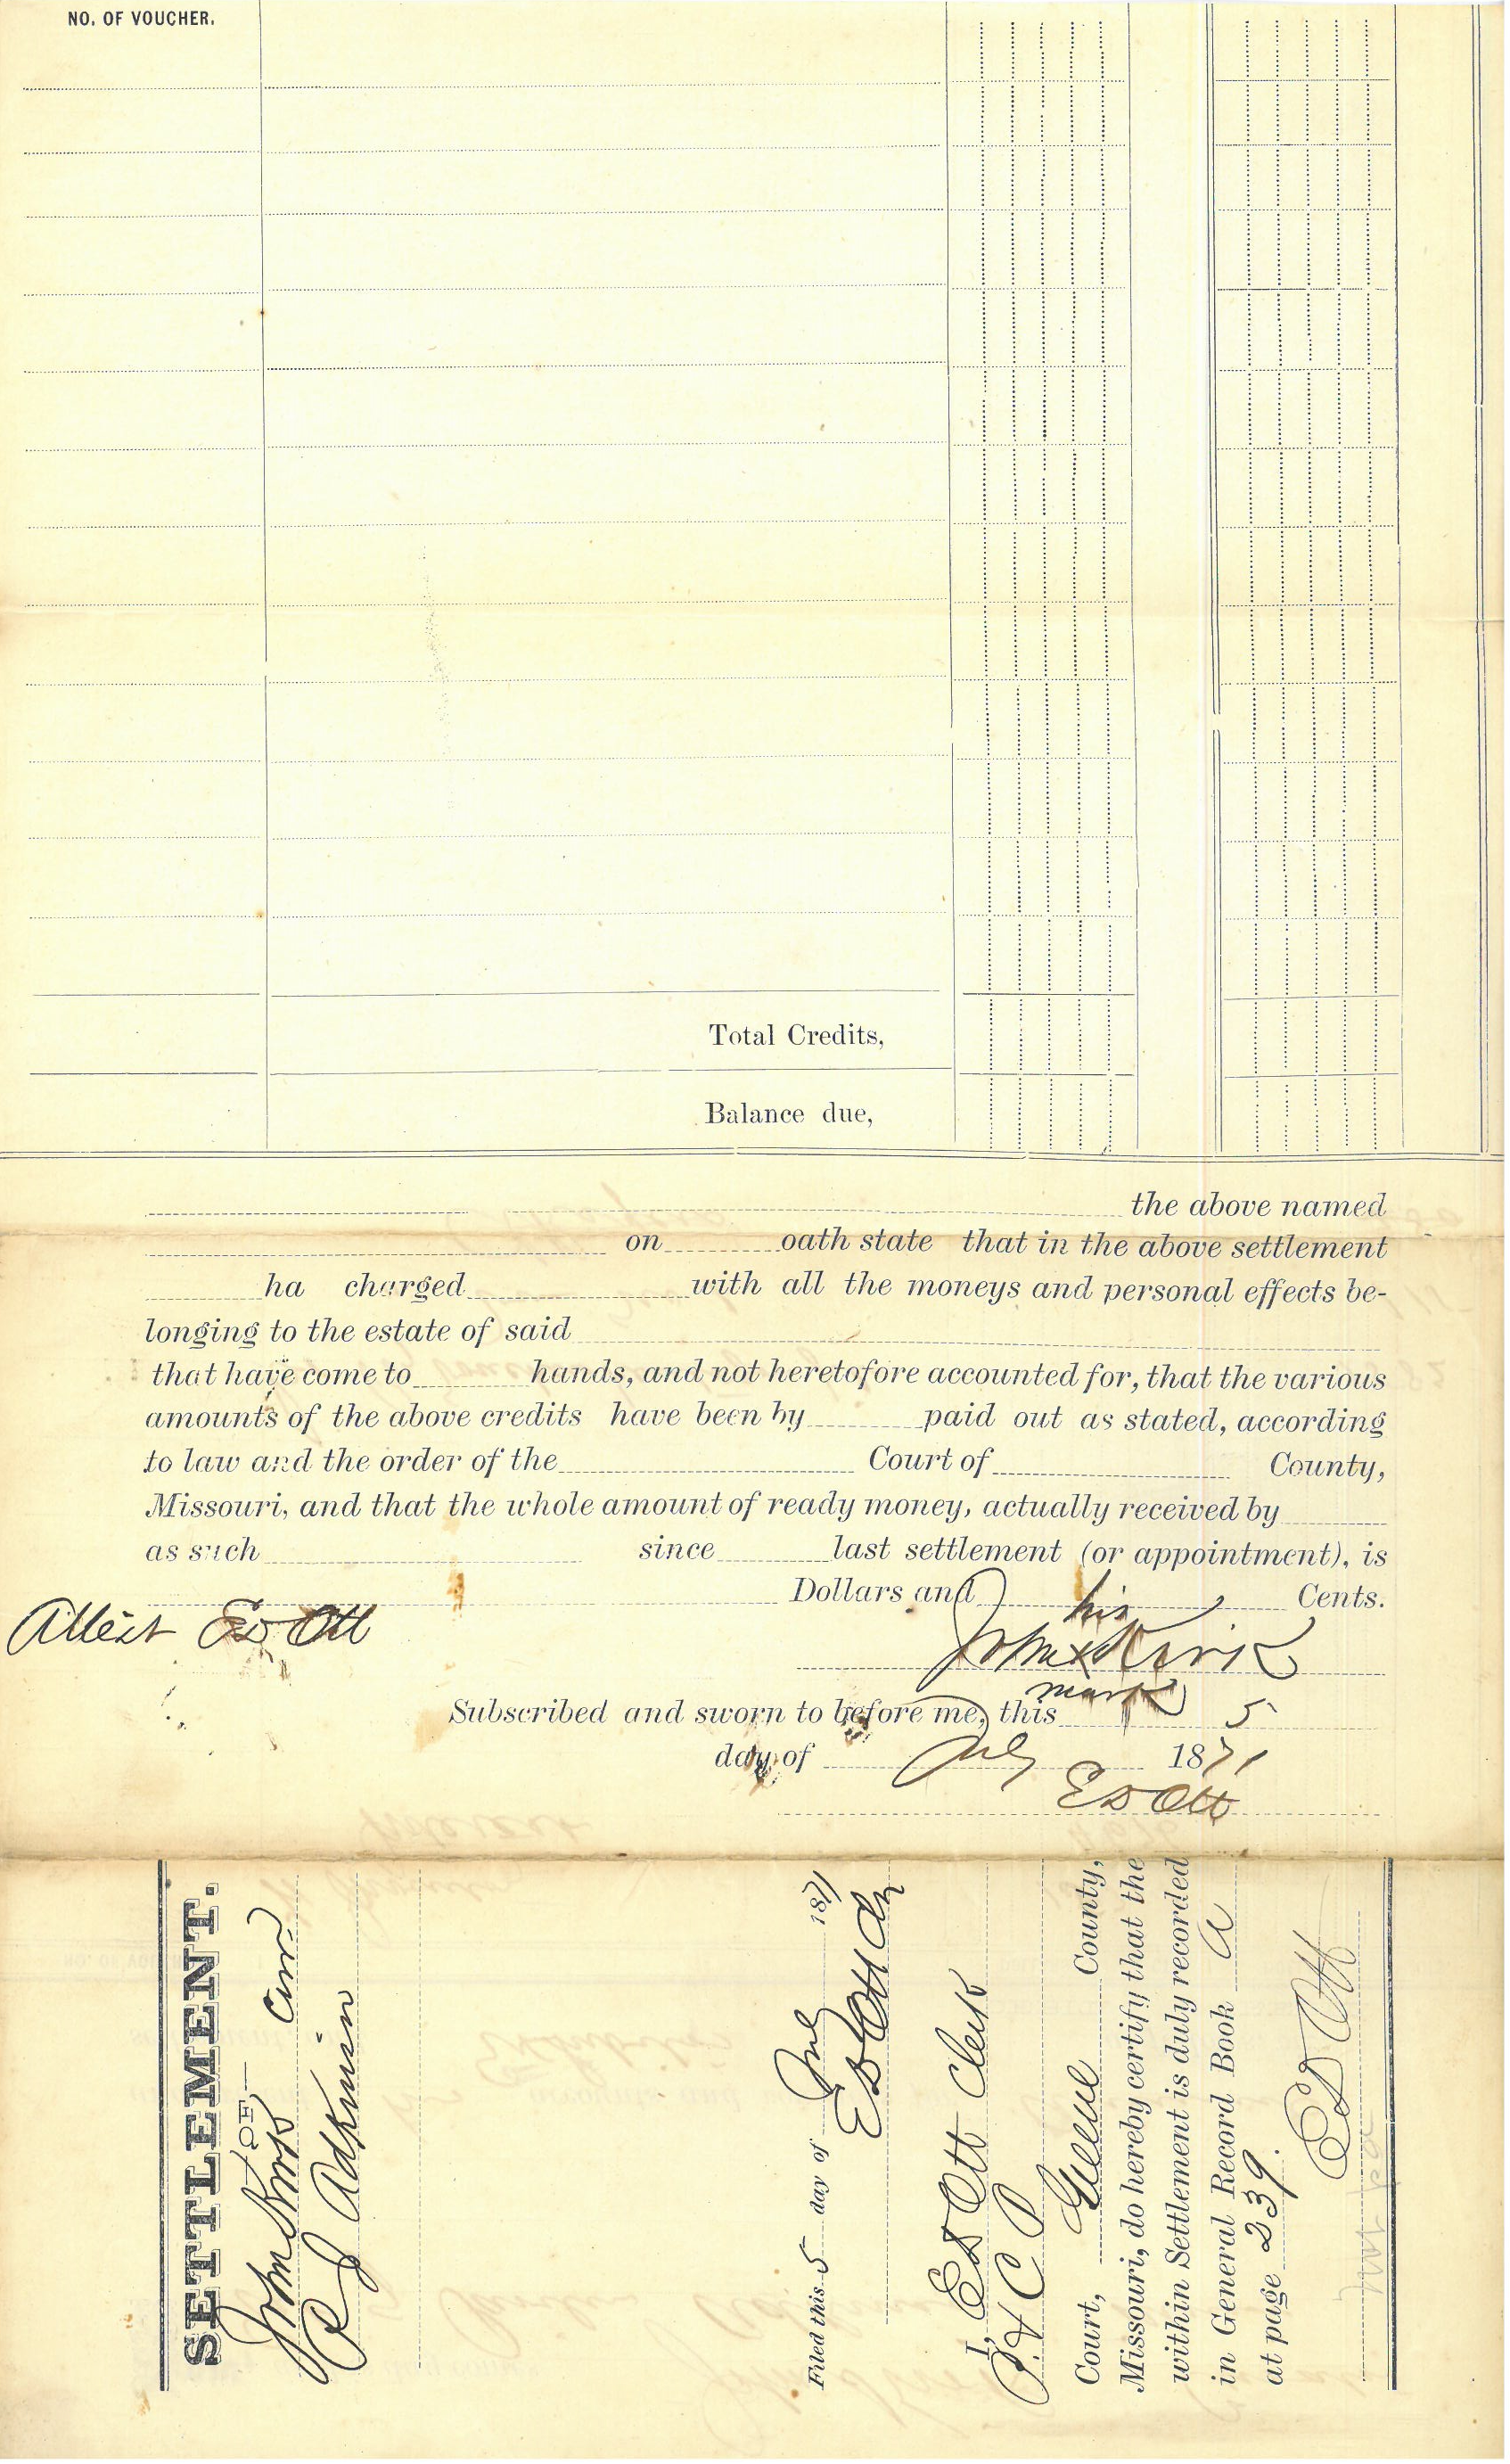 NO. OF VOUCHER.
Total Credits,
Balance due,
the above named
on oath state that in the above settlement
ha charged with all the moneys and personal effects be-
longing to the estate of said
that have come to hands, and not heretofore accounted for, that the various
amounts of the above credits have been by paid out as stated, according
to law and the order of the Court of County,
Missouri, and that the whole amount of ready money, actually received by
as such since last settlement (or appointment), is
Dollars and Cents.
his
Attest E D Ott John x Kirk
mark
Subscribed and sworn to before me, this 5
day of July 1871
E D Ott
SETTLEMENT.
OF
John Kirk Cur.
R J Adkinson
Filed this 5 day of July 1871
E D Ott Clk
I, E D Ott Clerk
P & C P
Court, Greene County,
Missouri, do hereby certify that the
within Settlement is duly recorded
in General Record Book A
at page 239.
E D Ott